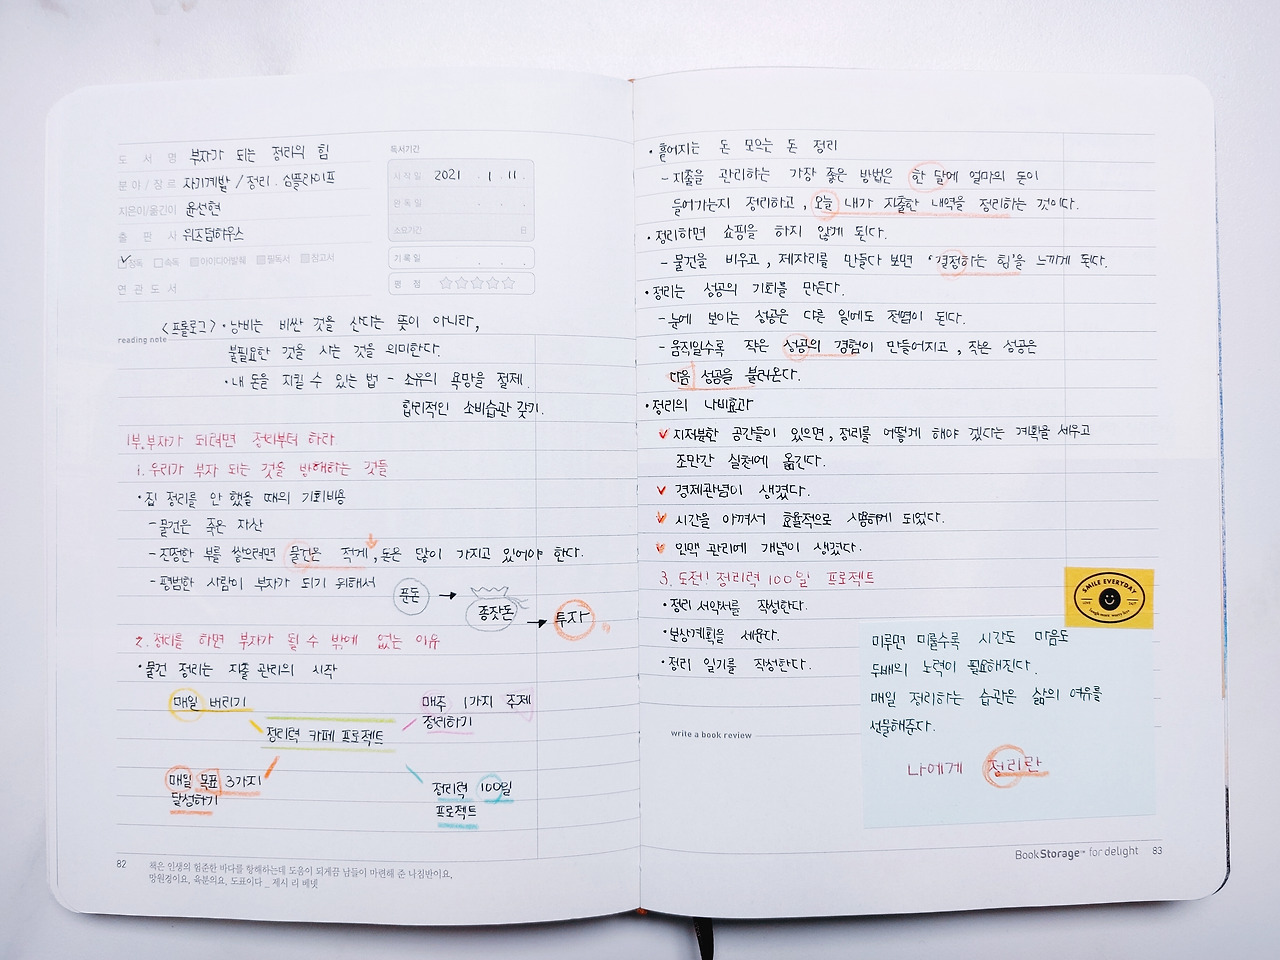 도 서 명 부자가 되는 정리의 힘
분야/장르 자기계발 / 정리. 심플라이프
지은이/옮긴이 윤선현
출 판 사 위즈덤하우스
정독 속독 아이디어발췌 필독서 참고서
연관도서
독서기간
시작일 2021 . 1 . 11 .
완독일 . . .
소요기간 일
기록일 . .
평 점
reading note
<프롤로그> · 낭비는 비싼 것을 산다는 뜻이 아니라,
불필요한 것을 사는 것을 의미한다.
· 내 돈을 지킬 수 있는 법 - 소유의 욕망을 절제.
합리적인 소비습관 갖기.
1부. 부자가 되려면 정리부터 하라
1. 우리가 부자 되는 것을 방해하는 것들
· 집 정리를 안 했을 때의 기회비용
- 물건은 죽은 자산
- 진정한 부를 쌓으려면 물건은 적게, 돈은 많이 가지고 있어야 한다.
- 평범한 사람이 부자가 되기 위해서
푼돈 → 종잣돈 → 투자
2. 정리를 하면 부자가 될 수 밖에 없는 이유
· 물건 정리는 지출 관리의 시작
매일 버리기
매주 1가지 주제
정리하기
정리력 카페 프로젝트
매일 목표 3가지
달성하기
정리력 100일
프로젝트
82
책은 인생의 험준한 바다를 항해하는데 도움이 되게끔 남들이 마련해 준 나침반이요,
망원경이요, 육분의요, 도표이다 _ 제시 리 베넷
· 흩어지는 돈 모으는 돈 정리
- 지출을 관리하는 가장 좋은 방법은 한 달에 얼마의 돈이
들어가는지 정리하고, 오늘 내가 지출한 내역을 정리하는 것이다.
· 정리하면 쇼핑을 하지 않게 된다.
- 물건을 비우고, 제자리를 만들다 보면 '결정하는 힘'을 느끼게 된다.
· 정리는 성공의 기회를 만든다.
- 눈에 보이는 성공은 다른 일에도 전염이 된다.
- 움직일수록 작은 성공의 경험이 만들어지고, 작은 성공은
다음 성공을 불러온다.
· 정리의 나비효과
✓ 지저분한 공간들이 있으면, 정리를 어떻게 해야 겠다는 계획을 세우고
조만간 실천에 옮긴다.
✓ 경제관념이 생겼다.
✓ 시간을 아껴서 효율적으로 사용하게 되었다.
✓ 인맥 관리에 개념이 생겼다.
3. 도전! 정리력 100일 프로젝트
· 정리 서약서를 작성한다.
· 보상계획을 세운다.
· 정리 일기를 작성한다.
SMILE EVERYDAY
미루면 미룰수록 시간도 마음도
두배의 노력이 필요해진다.
매일 정리하는 습관은 삶의 여유를
선물해준다.
나에게 정리란
write a book review
BookStorage™ for delight 83